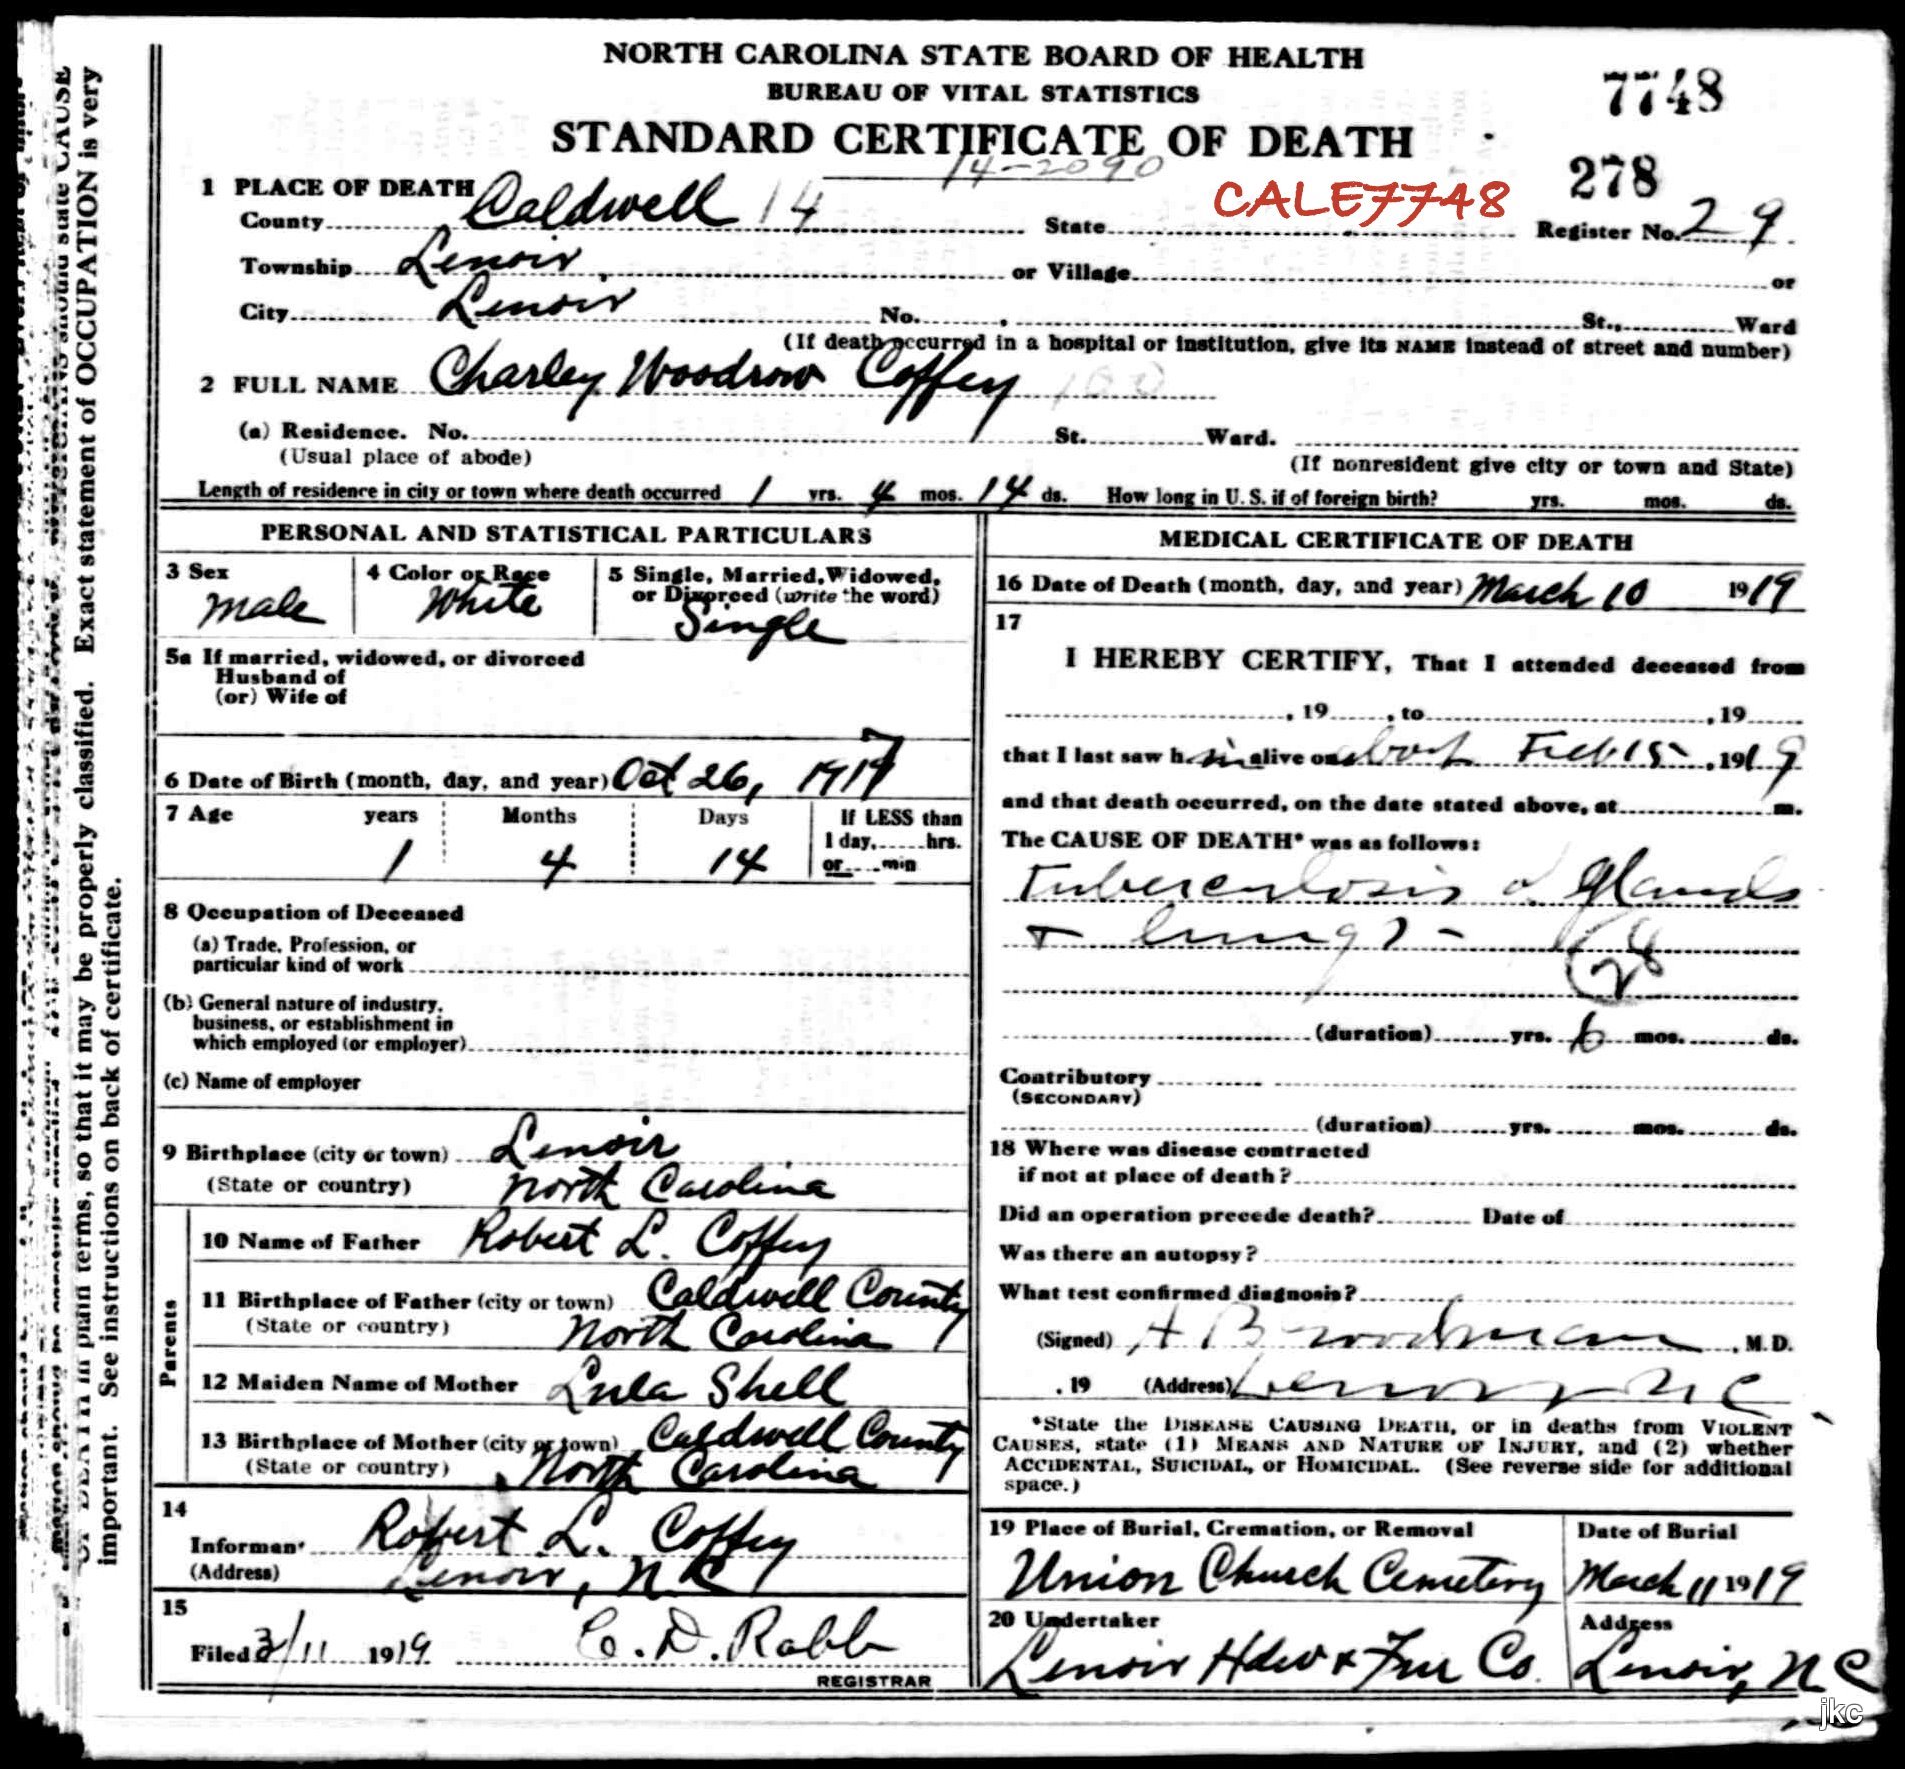 NORTH CAROLINA STATE BOARD OF HEALTH
BUREAU OF VITAL STATISTICS
STANDARD CERTIFICATE OF DEATH
7748
278
14-2090
CALE7748
1 PLACE OF DEATH
County Caldwell 14 State Register No. 29
Township Lenoir or Village or
City Lenoir No. St., Ward
(If death occurred in a hospital or institution, give its NAME instead of street and number)
2 FULL NAME Charley Woodrow Coffey
(a) Residence. No. St. Ward.
(Usual place of abode) (If nonresident give city or town and State)
Length of residence in city or town where death occurred 1 yrs. 4 mos. 14 ds. How long in U. S. if of foreign birth? yrs. mos. ds.
PERSONAL AND STATISTICAL PARTICULARS
3 Sex Male
4 Color or Race White
5 Single, Married, Widowed, or Divorced (write the word) Single
5a If married, widowed, or divorced
Husband of
(or) Wife of
6 Date of Birth (month, day, and year) Oct 26, 1917
7 Age years Months Days If LESS than
1 day, hrs.
or min
1 4 14
8 Occupation of Deceased
(a) Trade, Profession, or
particular kind of work
(b) General nature of industry,
business, or establishment in
which employed (or employer)
(c) Name of employer
9 Birthplace (city or town) Lenoir
(State or country) North Carolina
Parents
10 Name of Father Robert L. Coffey
11 Birthplace of Father (city or town) Caldwell County
(State or country) North Carolina
12 Maiden Name of Mother Lula Shell
13 Birthplace of Mother (city or town) Caldwell County
(State or country) North Carolina
14
Informant Robert L. Coffey
(Address) Lenoir, N C
15
Filed 3/11 1919 C. D. Rabb
REGISTRAR
MEDICAL CERTIFICATE OF DEATH
16 Date of Death (month, day, and year) March 10 1919
17
I HEREBY CERTIFY, That I attended deceased from
, 19 , to , 19
that I last saw h im alive on about Feb 15 , 1919
and that death occurred, on the date stated above, at m.
The CAUSE OF DEATH* was as follows:
Tuberculosis of Glands
+ lungs -
28
(duration) yrs. 6 mos. ds.
Contributory
(SECONDARY)
(duration) yrs. mos. ds.
18 Where was disease contracted
if not at place of death?
Did an operation precede death? Date of
Was there an autopsy?
What test confirmed diagnosis?
(Signed) A B Goodman , M. D.
, 19 (Address) Lenoir N C
*State the DISEASE CAUSING DEATH, or in deaths from VIOLENT
CAUSES, state (1) MEANS AND NATURE OF INJURY, and (2) whether
ACCIDENTAL, SUICIDAL, or HOMICIDAL. (See reverse side for additional
space.)
19 Place of Burial, Cremation, or Removal Date of Burial
Union Church Cemetery March 11 1919
20 Undertaker Address
Lenoir Hdw & Fur Co. Lenoir, N C
state CAUSE
OF DEATH in plain terms, so that it may be properly classified. Exact statement of OCCUPATION is very
important. See instructions on back of certificate.
jkc